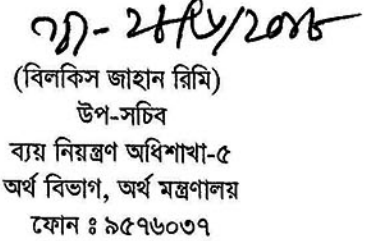 (বিলকিস জাহান রিমি)
উপ-সচিব
ব্যয় নিয়ন্ত্রণ অধিশাখা-৫
অর্থ বিভাগ, অর্থ মন্ত্রণালয়
ফোন ঃ ৯৫৭৬০৩৭